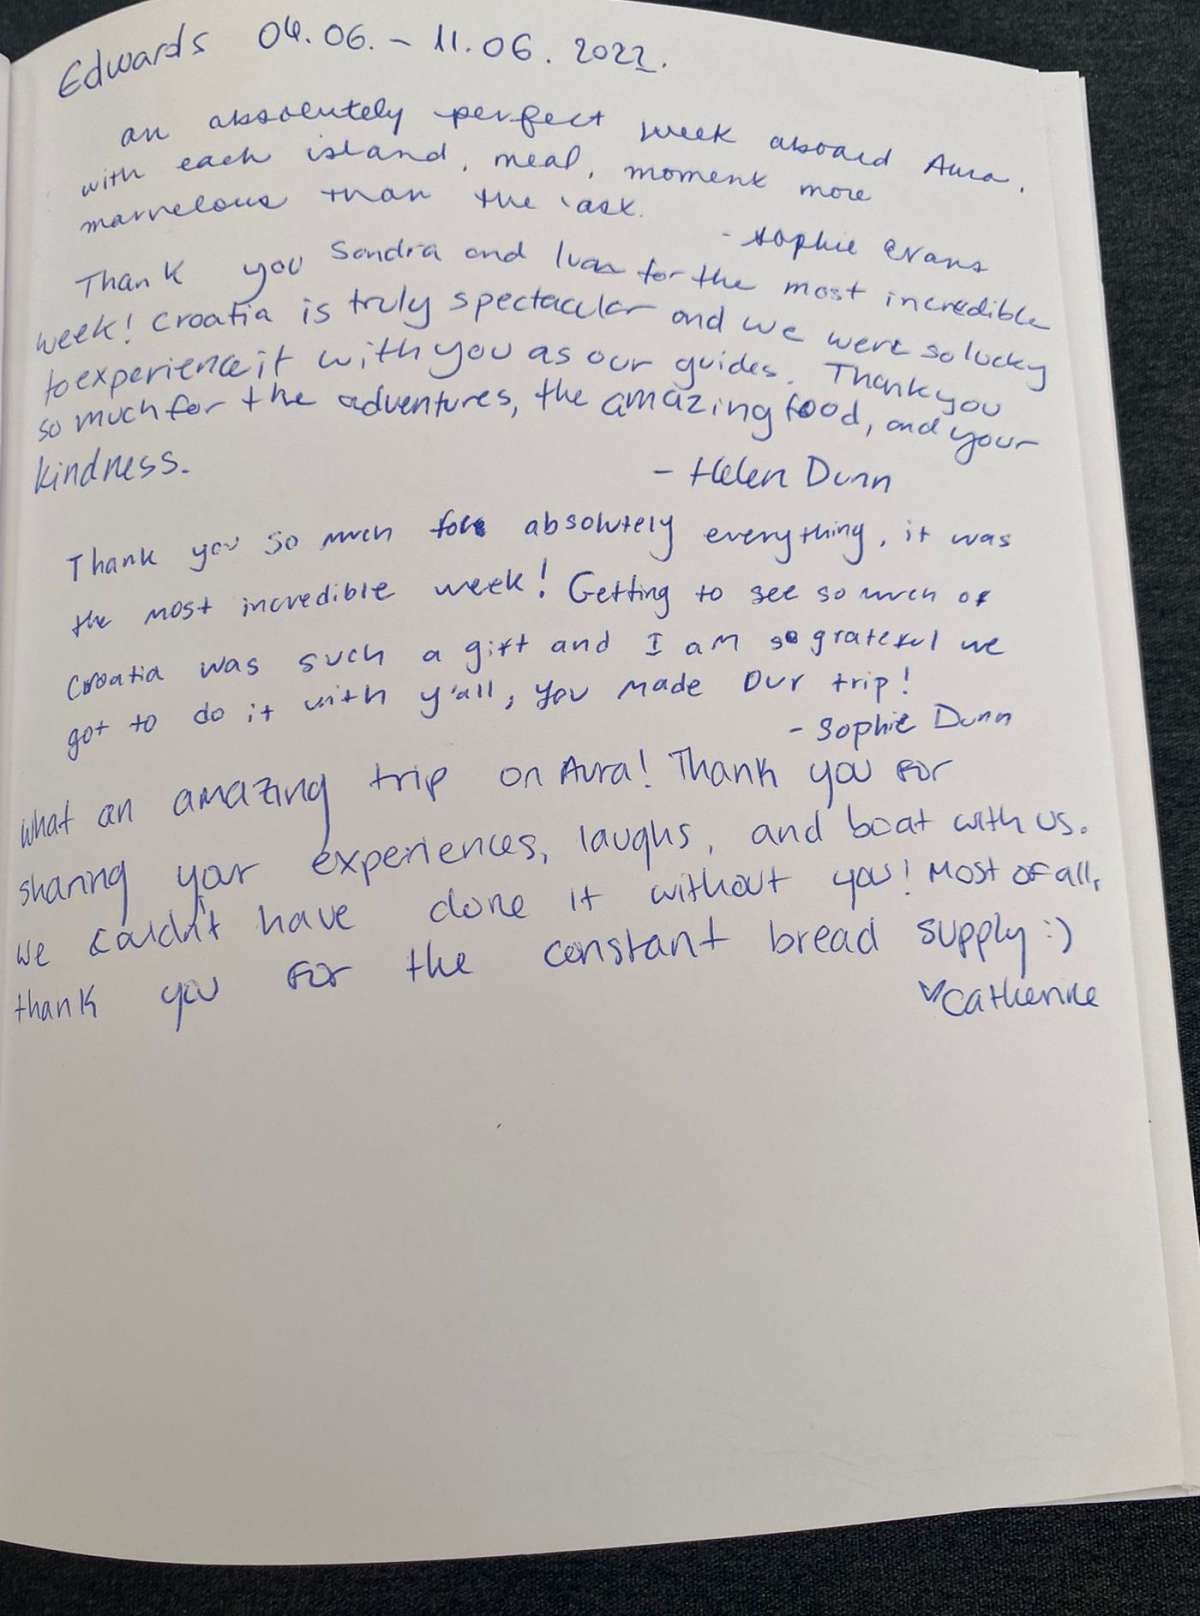 Edwards 04.06. - 11.06. 2022.
an absolutely perfect week aboard Aura,
with each island, meal, moment more
marvelous than the last.
- Sophie Evans
Thank you Sandra and Ivan for the most incredible
week! Croatia is truly spectacular and we were so lucky
to experience it with you as our guides. Thank you
so much for the adventures, the amazing food, and your
kindness.
- Helen Dunn
Thank you so much for absolutely everything, it was
the most incredible week! Getting to see so much of
Croatia was such a gift and I am so grateful we
got to do it with y'all, you made our trip!
- Sophie Dunn
What an amazing trip on Aura! Thank you for
sharing your experiences, laughs, and boat with us.
We couldn't have done it without you! Most of all,
thank you for the constant bread supply :)
♥Catherine